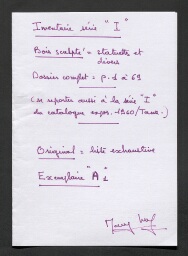 Inventaire série "I"
Bois sculpté = statuettes et
divers
Dossier complet = p. 1 à 69
(se reporter aussi à la série "I"
du catalogue expos. 1960/Taur.)
Original = liste exhaustive
Exemplaire "A"